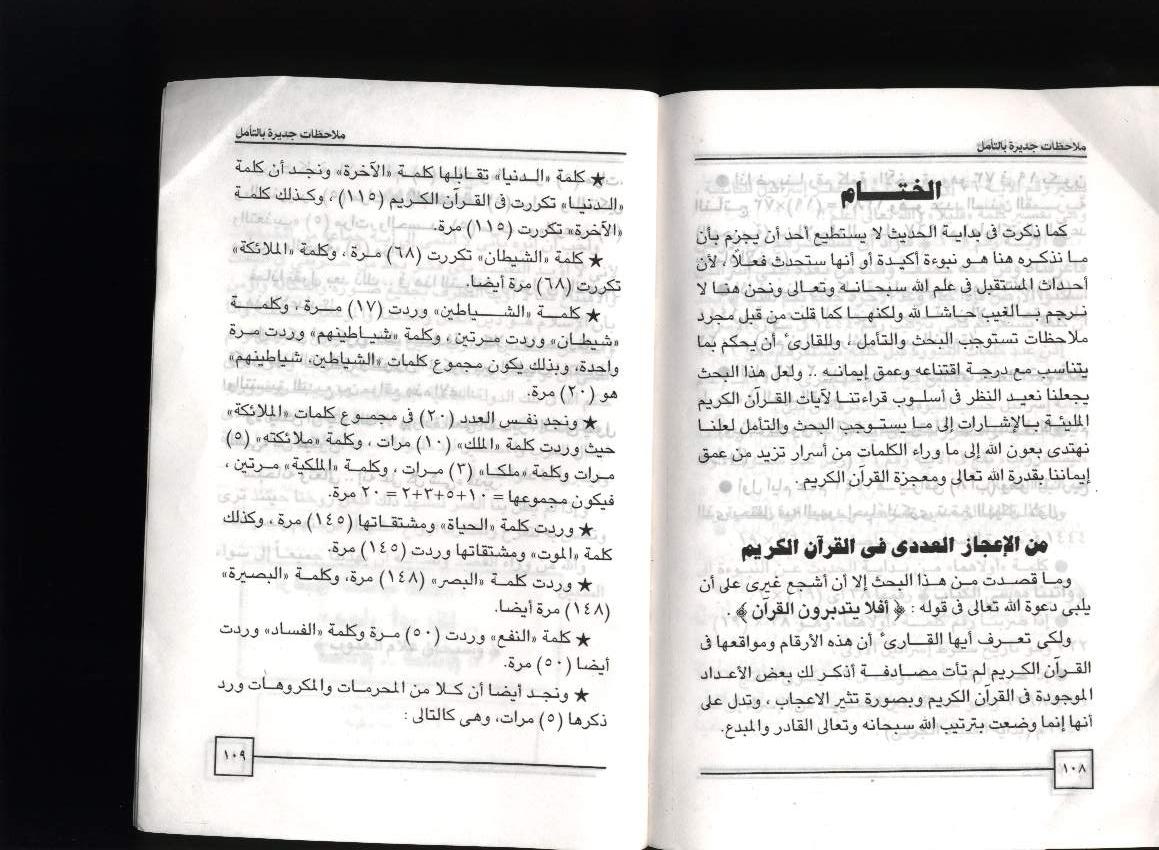 ملاحظات جديرة بالتأمل
الختـــام
كما ذكرت فى بداية الحديث لا يستطيع أحد أن يجزم بأن
ما نذكره هنا هو نبوءة أكيدة أو أنها ستحدث فعلًا ، لأن
أحداث المستقبل فى علم الله سبحانه وتعالى ونحن هنا لا
نرجم بالغيب حاشا لله ولكنها كما قلت من قبل مجرد
ملاحظات تستوجب البحث والتأمل ، وللقارئ أن يحكم بما
يتناسب مع درجة اقتناعه وعمق إيمانه .. ولعل هذا البحث
يجعلنا نعيد النظر فى أسلوب قراءتنا لآيات القرآن الكريم
المليئة بالإشارات إلى ما يستوجب البحث والتأمل لعلنا
نهتدى بعون الله إلى ما وراء الكلمات من أسرار تزيد من عمق
إيماننا بقدرة الله تعالى ومعجزة القرآن الكريم .
من الإعجاز العددى فى القرآن الكريم
وما قصدت من هذا البحث إلا أن أشجع غيرى على أن
يلبى دعوة الله تعالى فى قوله : ﴿ أفلا يتدبرون القرآن ﴾ .
ولكى تعرف أيها القارئ أن هذه الأرقام ومواقعها فى
القرآن الكريم لم تأت مصادفة أذكر لك بعض الأعداد
الموجودة فى القرآن الكريم وبصورة تثير الاعجاب ، وتدل على
أنها إنما وضعت بترتيب الله سبحانه وتعالى القادر والمبدع.
١٠٨
ملاحظات جديرة بالتأمل
★ كلمة «الدنيا» تقابلها كلمة «الآخرة» ونجد أن كلمة
«الدنيا» تكررت فى القرآن الكريم (١١٥) ، وكذلك كلمة
«الآخرة» تكررت (١١٥) مرة.
★ كلمة «الشيطان» تكررت (٦٨) مرة ، وكلمة «الملائكة»
تكررت (٦٨) مرة أيضا.
★ كلمة «الشياطين» وردت (١٧) مرة ، وكلمة
«شيطان» وردت مرتين ، وكلمة «شياطينهم» وردت مرة
واحدة، وبذلك يكون مجموع كلمات «الشياطين، شياطينهم»
هو (٢٠) مرة.
★ ونجد نفس العدد (٢٠) فى مجموع كلمات «الملائكة»
حيث وردت كلمة «الملك» (١٠) مرات ، وكلمة «ملائكته» (٥)
مرات وكلمة «ملكا» (٣) مرات ، وكلمة «الملكية» مرتين ،
فيكون مجموعها = ١٠+٥+٣+٢ = ٢٠ مرة.
★ وردت كلمة «الحياة» ومشتقاتها (١٤٥) مرة ، وكذلك
كلمة «الموت» ومشتقاتها وردت (١٤٥) مرة.
★ وردت كلمة «البصر» (١٤٨) مرة، وكلمة «البصيرة»
(١٤٨) مرة أيضا.
★ كلمة «النفع» وردت (٥٠) مرة وكلمة «الفساد» وردت
أيضا (٥٠) مرة.
★ ونجد أيضا أن كلا من المحرمات والمكروهات ورد
ذكرها (٥) مرات، وهى كالتالى :
١٠٩